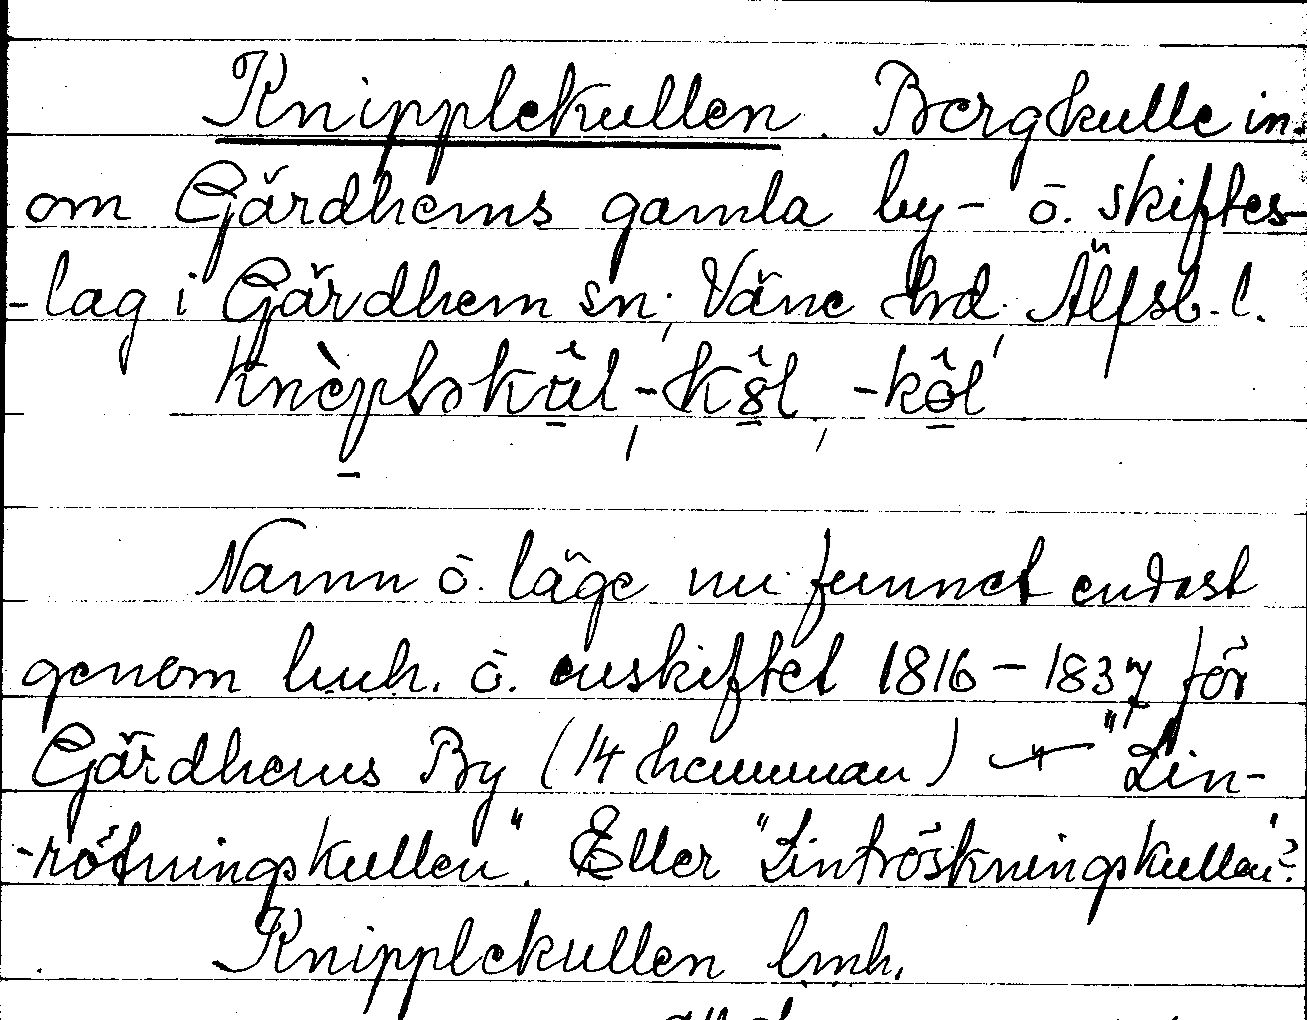 Knipplekullen. Bergkulle in-
om Gärdhems gamla by- o. skiftes-
-lag i Gärdhem sn; Väne hd; Älfsb. l.
Namn o. läge nu funnet endast
genom lmh. o. enskiftet 1816 - 1837 för
Gärdhems By (14 hemman) "Lin-
-rötningskullen". Eller "Lintröskningskullen"?
Knipplekullen lmh.